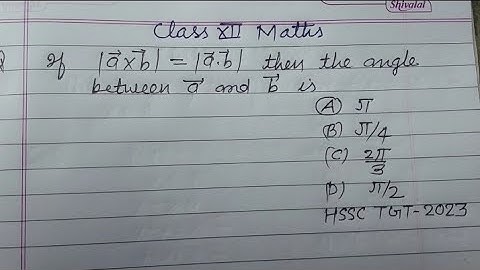 Shivalal
Class XII Maths
If |a⃗×b⃗| = |a⃗.b⃗| then the angle
between a⃗ and b⃗ is
(A) π
(B) π/4
(C) 2π/3
(D) π/2
HSSC TGT-2023